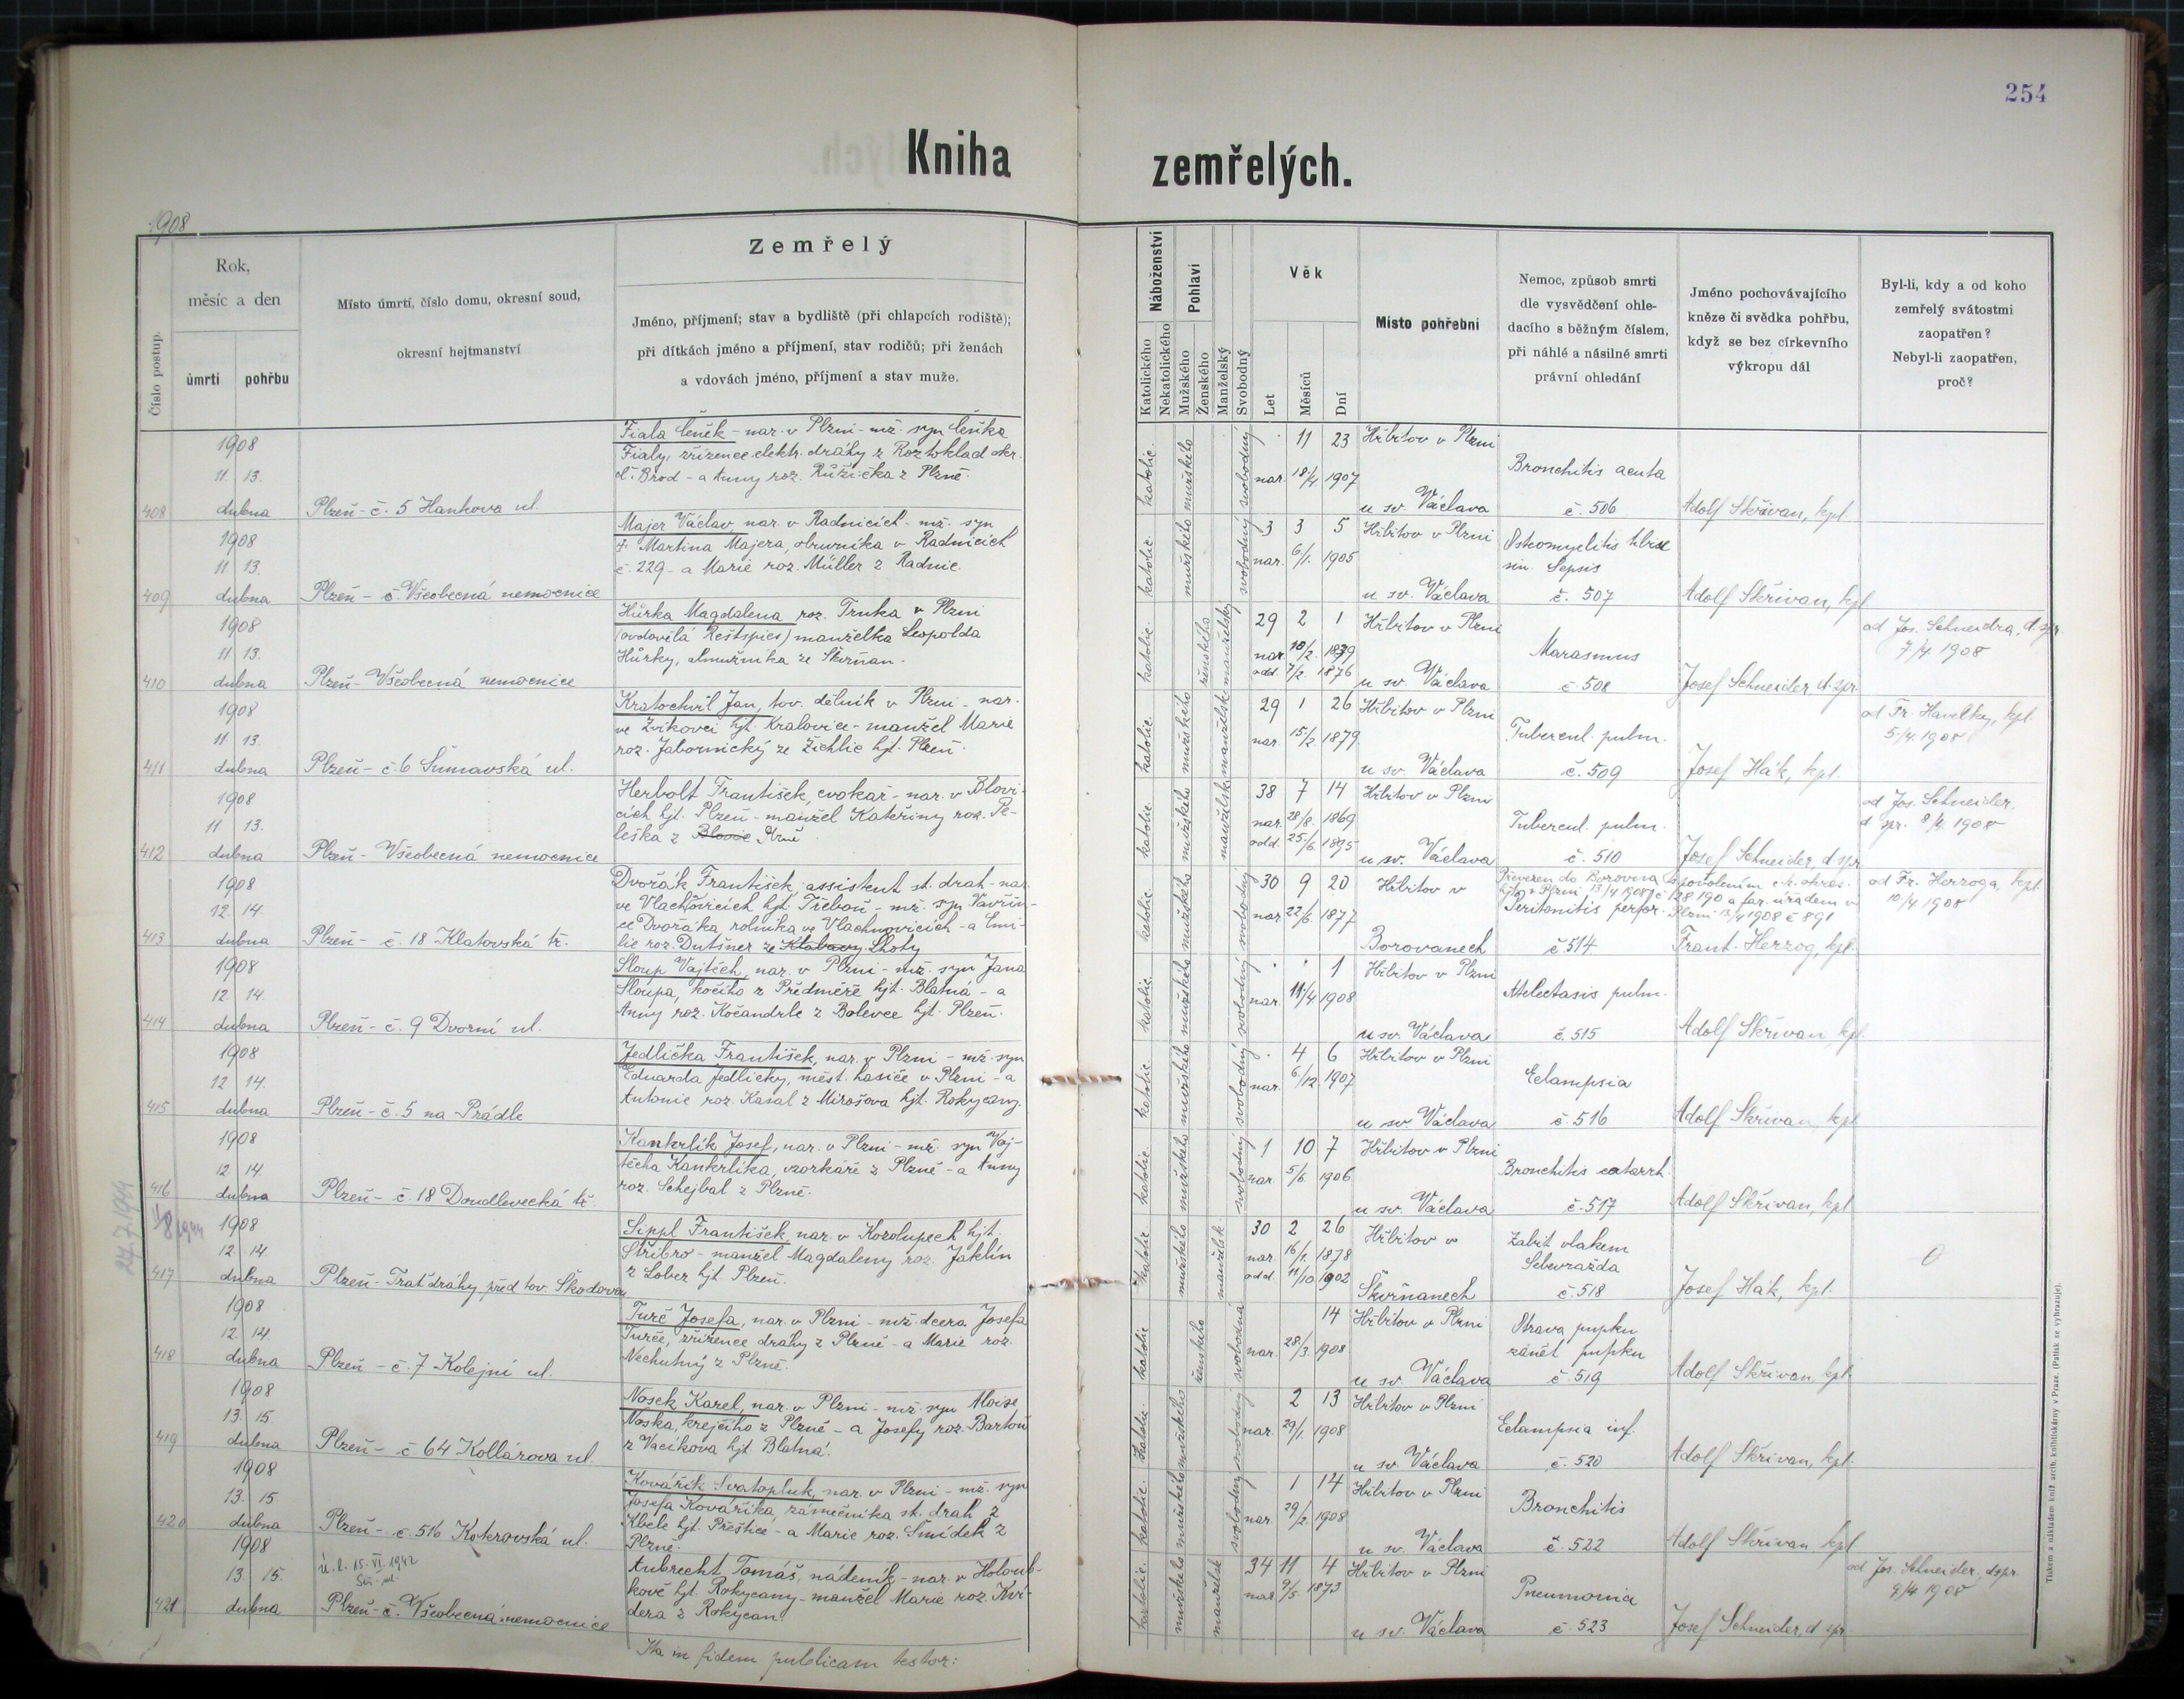 254
Kniha zemřelých.
1908
Číslo postup.
Rok,
měsíc a den
úmrtí
pohřbu
Místo úmrtí, číslo domu, okresní soud,
okresní hejtmanství
Zemřelý
Jméno, příjmení; stav a bydliště (při chlapcích rodiště);
při dítkách jméno a příjmení, stav rodičů; při ženách
a vdovách jméno, příjmení a stav muže.
Náboženství
Katolického
Nekatolického
Pohlaví
Mužského
Ženského
Manželský
Svobodný
Věk
Let
Měsíců
Dní
Místo pohřební
Nemoc, způsob smrti
dle vysvědčení ohle-
dacího s běžným číslem,
při náhlé a násilné smrti
právní ohledání
Jméno pochovávajícího
kněze či svědka pohřbu,
když se bez církevního
výkropu dál
Byl-li, kdy a od koho
zemřelý svátostmi
zaopatřen?
Nebyl-li zaopatřen,
proč?
408
1908
11. 13.
dubna
Plzeň - č. 5 Hankova ul.
Fiala Čeněk - nar. v Plzni - mž. syn Čeňka
Fialy, zřízence elektr. dráhy z Roztoklad okr.
č. Brod - a Anny roz. Růžička z Plzně.
katolic. mužského svobodný
. 11 23
nar. 18/4 1907
Hřbitov v Plzni
u sv. Václava
Bronchitis acuta
č. 506
Adolf Skřivan, kpl.
409
1908
11 13.
dubna
Plzeň - č. Všeobecná nemocnice
Majer Václav nar. v Radnicích - mž. syn
+ Martina Majera, obuvníka v Radnicích
č. 229 - a Marie roz. Müller z Radnic.
katolic. mužského svobodný
3 3 5
nar. 6/1. 1905
Hřbitov v Plzni
u sv. Václava
Osteomyelitis tibiae
sin. Sepsis
č. 507
Adolf Skřivan, kpl
410
1908
11 13.
dubna
Plzeň - Všeobecná nemocnice
Hůrka Magdalena roz. Trnka v Plzni
(ovdovělá Reštspies) manželka Leopolda
Hůrky, almužníka ze Skvrňan.
katolic. ženského manželský
29 2 1
nar. 10/2. 1839
odd. 7/2. 1876
Hřbitov v Plzni
u sv. Václava
Marasmus
č. 508
Josef Schneider d. spr.
od Jos. Schneidra, d. spr.
7/4. 1908
411
1908
11 13.
dubna
Plzeň - č. 6 Šumavská ul.
Kratochvíl Jan, tov. dělník v Plzni - nar.
ve Zvíkovci hjt. Kralovice - manžel Marie
roz. Jabornický ze Žichlic hjt. Plzeň.
katolic. mužského manželsk.
29 1 26
nar. 15/2. 1879.
Hřbitov v Plzni
u sv. Václava
Tubercul. pulm.
č. 509
Josef Hák, kpl.
od Fr. Havelky, kpl.
5./4. 1908
412
1908
11 13.
dubna
Plzeň - Všeobecná nemocnice
Herbolt František, cvokař - nar. v Blovi-
cích hjt. Plzeň - manžel Kateřiny roz. Pe-
leška z Blovic
katolic. mužského manželsk.
38 7 14
nar. 28/8. 1869
odd. 25/6. 1895
Hřbitov v Plzni
u sv. Václava
Tubercul. pulm.
č. 510
Josef Schneider, d. spr.
od Jos. Schneider,
d. spr. 8/4. 1908
413
1908
12. 14.
dubna
Plzeň - č. 18 Klatovská tř.
Dvořák František, assistent st. drah - nar.
ve Vlachňovicích hjt. Třeboň - mž. syn Vavřin-
ce Dvořáka, rolníka ve Vlachnovicích - a Emi-
lie roz. Dutšner ze Klabavy Lhoty
katolic. mužského svobodný
30 9 20
nar. 22/6. 1877
Hřbitov v
Borovanech
Převezen do Borovan s povolením c. k. okres.
hjt. v Plzni 13/4 1908 č 128 190 a far. úřadem v
Peritonitis perfor. Plzni 13/4 1908 č 891
č. 514
Frant. Herzog, kpl.
od Fr. Herzoga, kpl.
10/4 1908
414
1908
12 14.
dubna
Plzeň - č. 9 Dvorní ul.
Sloup Vojtěch, nar. v Plzni - mž. syn Jana
Sloupa, kočího z Předmíře hjt. Blatná - a
Anny roz. Kočandrle z Bolevce hjt. Plzeň.
katolic. mužského svobodný
. . 1
nar. 11./4. 1908
Hřbitov v Plzni
u sv. Václava
Atelectasis pulm.
č. 515
Adolf Skřivan, kpl.
415
1908
12 14.
dubna
Plzeň - č. 5 na Prádle
Jedlička František, nar. v Plzni - mž. syn
Eduarda Jedličky, měst. hasiče v Plzni - a
Antonie roz. Kasal z Mirošova hjt. Rokycany.
katolic. mužského svobodný
. 4 6
nar. 6./12. 1907
Hřbitov v Plzni
u sv. Václava
Eclampsia
č. 516
Adolf Skřivan, kpl
416
1908
12 14.
dubna
Plzeň - č. 18 Doudlevecká tř.
Kankrlík Josef, nar. v Plzni - mž. syn Voj-
těcha Kankrlíka, vzorkáře z Plzně - a Anny
roz. Schejbal z Plzně.
katolic. mužského svobodný
1 10 7
nar. 5/6. 1906
Hřbitov v Plzni
u sv. Václava
Bronchitis catarrh.
č. 517
Adolf Skřivan, kpl
24.7.1944
1/8 1944
417
1908
12. 14.
dubna
Plzeň - Trať dráhy před tov. Škodovou
Sippl František, nar. v Kozolupech hjt.
Stříbro - manžel Magdaleny roz. Jaklín
z Lobez hjt. Plzeň.
katolic mužského manželsk.
30 2 26
nar. 16/1. 1878
odd. 11/10. 1902
Hřbitov v
Skvrňanech
Zabit vlakem
Sebevražda
č. 518
Josef Hák, kpl.
0
418
1908
12. 14.
dubna
Plzeň - č. 7 Kolejní ul.
Turč Josefa, nar. v Plzni - mž. dcera Josefa
Turče, zřízence dráhy z Plzně - a Marie roz.
Nechutný z Plzně.
katolic ženského svobodná
14
nar. 28/3. 1908
Hřbitov v Plzni
u sv. Václava
Otrava pupku
zánět pupku
č. 519
Adolf Skřivan, kpl.
419
1908
13. 15.
dubna
Plzeň - č 64 Kollárova ul.
Nosek Karel, nar. v Plzni - mž. syn Aloise
Noska, krejčího z Plzně - a Josefy roz. Bartoň
z Vacíkova hjt. Blatná.
katolic. mužského svobodný
2 13
nar. 29/1. 1908
Hřbitov v Plzni
u sv. Václava
Eclampsia inf.
č. 520
Adolf Skřivan, kpl.
420
1908
13. 15.
dubna
Plzeň - č. 516 Koterovská ul.
Kovářík Svatopluk, nar. v Plzni - mž. syn
Josefa Kováříka, zámečníka st. drah z
Kbele hjt. Přeštice - a Marie roz. Šmídek z
Plzně.
katolic. mužského svobodný
1 14
nar. 29/2. 1908
Hřbitov v Plzni
u sv. Václava
Bronchitis
č. 522
Adolf Skřivan, kpl
421
1908
13. 15.
dubna
Ú. l. 15. VI. 1942
Plzeň - č. Všeobecná nemocnice
Aubrecht Tomáš, nádeník - nar. v Holoub-
kově hjt. Rokycany - manžel Marie roz. Kví-
dera z Rokycan
katolic. mužského manželsk
34 11 4
nar. 9/5. 1873
Hřbitov v Plzni
u sv. Václava
Pneumonia
č. 523
Josef Schneider, d spr
od Jos. Schneider, d spr.
9/4 1908
Ita in fidem publicam testor:
Tiskem a nákladem kníž. arcib. knihtiskárny v Praze. (Patisk se vyhrazuje).